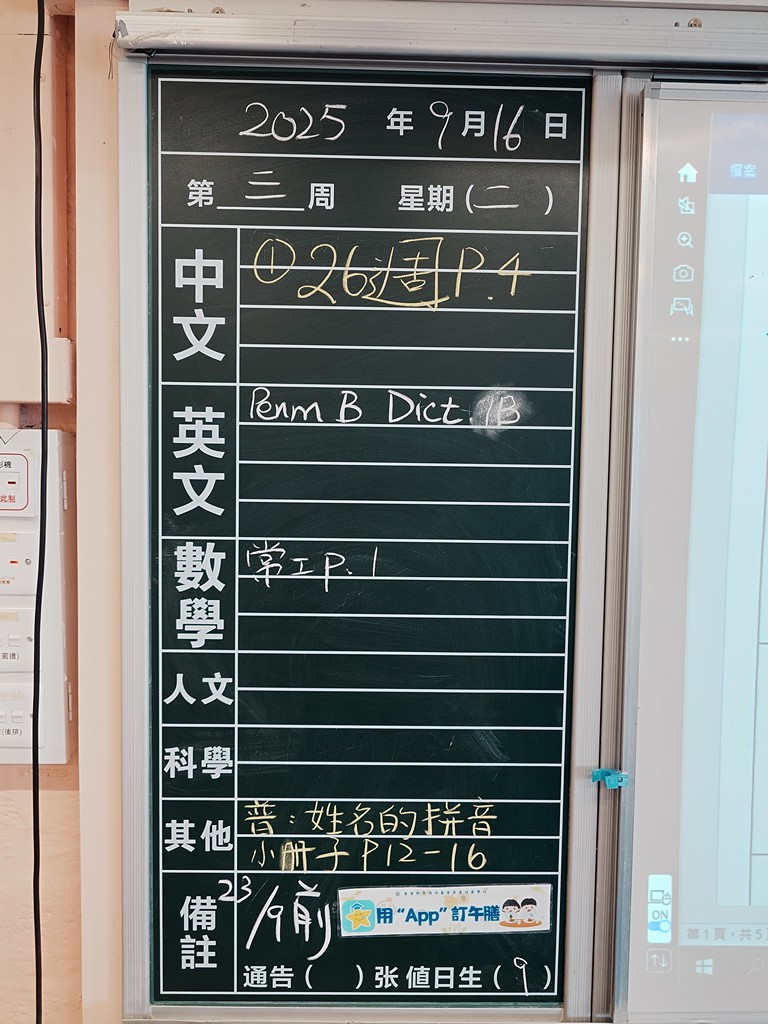 2025 年 9 月 16 日
第 三 周 星期 (二)
中文
① 26週 P.4
英文
Penm B Dict. 1B
數學
常工 P.1
人文
科學
其他
普：姓名的拼音
小冊子 P12-16
備註
23/9前
用 “App” 訂午膳
通告 ( ) 张 値日生 ( 9 )
檔案
ON
第 1 頁，共 5